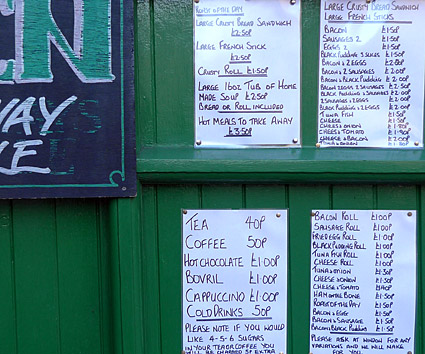 EN
WAY
KE
ROAST OF THE DAY
LARGE CRUSTY BREAD SANDWICH
£2.50P
LARGE FRENCH STICK
£2.50P
CRUSTY ROLL £1.50P
LARGE 16OZ TUB OF HOME
MADE SOUP £2.50P
BREAD OR ROLL INCLUDED
HOT MEALS TO TAKE AWAY
£3.50P
LARGE CRUSTY BREAD SANDWICH
LARGE FRENCH STICKS
BACON £1.50P
SAUSAGES 2 £1.50P
EGGS 2 £1.50P
BLACK PUDDING 3 SLICES £1.50P
BACON & 2 EGGS £2.00P
BACON & 2 SAUSAGES £2.00P
BACON & BLACK PUDDING £2.00P
BACON 2 EGGS 2 SAUSAGES £2.00P
BLACK PUDDING & 2 SAUSAGES £2.00P
2 SAUSAGES & 2 EGGS £2.00P
BLACK PUDDING & 2 EGGS £2.00P
TUNA FISH £1.50P
CHEESE £1.50P
CHEESE & ONION
CHEESE & TOMATO
CHEESE & BACON £2.00P
TUNA & ONION
TEA 40P
COFFEE 50P
HOT CHOCOLATE £1.00P
BOVRIL £1.00P
CAPPUCCINO £1.00P
COLD DRINKS 50P
PLEASE NOTE IF YOU WOULD
LIKE 4-5-6 SUGARS
IN YOUR TEA OR COFFEE YOU
WILL BE CHARGED 5P EXTRA
BACON ROLL £1.00P
SAUSAGE ROLL £1.00P
FRIED EGG ROLL £1.00P
BLACK PUDDING ROLL £1.00P
TUNA FISH ROLL £1.00P
CHEESE ROLL £1.00P
TUNA & ONION £1.30P
CHEESE & ONION £1.50P
CHEESE & TOMATO
HAM ON THE BONE £1.50P
ROAST OF THE DAY £1.50P
BACON & EGG £1.50P
BACON & SAUSAGE £1.50P
BACON & BLACK PUDDING £1.50P
PLEASE ASK AT WINDOW FOR ANY
VARIATIONS AND WE WILL MAKE
FOR YOU